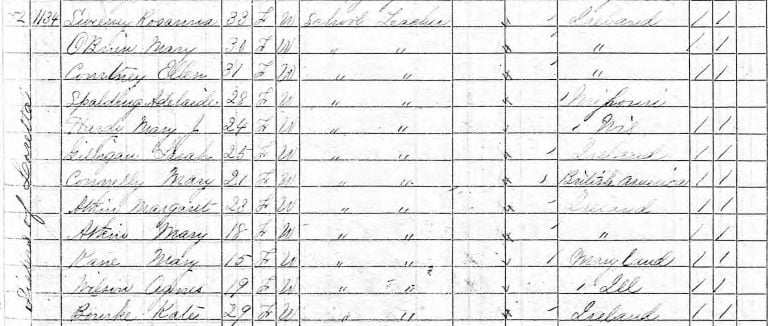 1134 Sweeny Rosanna 33 F W School Teacher " / Ireland / /
O'Brien Mary 30 F W " " " / " / /
Courtney Ellen 31 F W " " " / " / /
Spalding Adelaide 28 F W " " " / Missouri / /
Hardy Mary J 24 F W " " / Wis / /
Gilligan Sarah 25 F W " " " / Ireland / /
Connelly Mary 21 F W " " " / British America / /
Margaret 23 F W " " " / Ireland / /
Mary 18 F W " " " / " / /
Kane Mary 15 F W " " / Maryland / /
Wilson Agnes 19 F W " " / Ill / /
Bourke Kate 29 F W " " " / Ireland / /
Sisters of Loretta